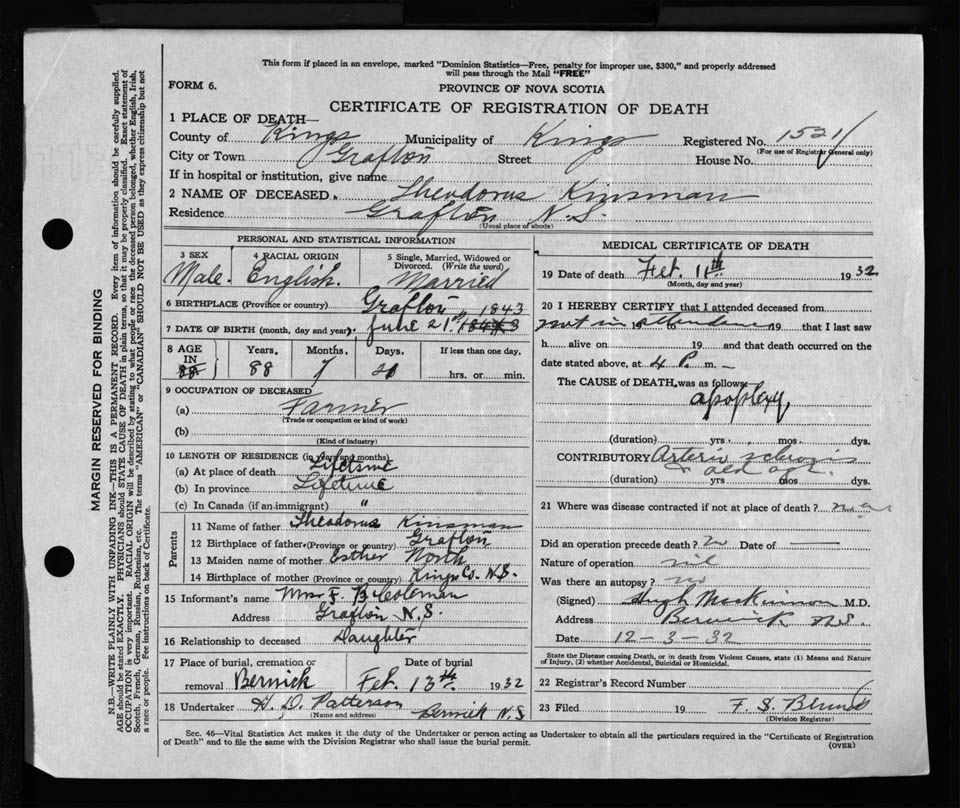 This form if placed in an envelope, marked "Dominion Statistics—Free, penalty for improper use, $300," and properly addressed
will pass through the Mail "FREE"
FORM 6.
PROVINCE OF NOVA SCOTIA
CERTIFICATE OF REGISTRATION OF DEATH
1 PLACE OF DEATH—
County of Kings Municipality of Kings Registered No. 1521
(For use of Registrar General only)
City or Town Grafton Street House No.
If in hospital or institution, give name
2 NAME OF DECEASED. Theodorus Kinsman
Residence Grafton N.S.
(Usual place of abode)
PERSONAL AND STATISTICAL INFORMATION
3 SEX Male.
4 RACIAL ORIGIN English.
5 Single, Married, Widowed or Divorced. (Write the word) Married
6 BIRTHPLACE (Province or country) Grafton
7 DATE OF BIRTH (month, day and year) June 21st, 1843
8 AGE IN
Years. Months. Days. If less than one day.
88 7 hrs. or min.
9 OCCUPATION OF DECEASED
(a) Farmer
(Trade or occupation or kind of work)
(b)
(Kind of industry)
10 LENGTH OF RESIDENCE (in years and months)
(a) At place of death Lifetime
(b) In province Lifetime
(c) In Canada (if an immigrant) "
Parents
11 Name of father Theodorus Kinsman
12 Birthplace of father (Province or country) Grafton
13 Maiden name of mother Esther North
14 Birthplace of mother (Province or country) Kings Co. N.S.
15 Informant's name Mrs F. B. Coleman
Address Grafton N.S.
16 Relationship to deceased Daughter
17 Place of burial, cremation or removal Berwick
Date of burial Feb. 13th 1932
18 Undertaker H. D. Patterson Berwick N.S
(Name and address)
MEDICAL CERTIFICATE OF DEATH
19 Date of death Feb. 11th 1932
(Month, day and year)
20 I HEREBY CERTIFY that I attended deceased from
not in attendance 19 that I last saw
h alive on 19 and that death occurred on the
date stated above, at 4 P. m.
The CAUSE OF DEATH was as follows:
apoplexy
(duration) yrs. mos. dys.
CONTRIBUTORY Arterio sclerosis
+ old age
(duration) yrs. mos. dys.
21 Where was disease contracted if not at place of death?
Did an operation precede death? no Date of —
Nature of operation nil
Was there an autopsy? no
(Signed) Hugh MacKinnon M.D.
Address Berwick N.S.
Date 12-3-32
State the Disease causing Death, or in death from Violent Causes, state (1) Means and Nature
of Injury, (2) whether Accidental, Suicidal or Homicidal.
22 Registrar's Record Number
23 Filed 19 F. S.
(Division Registrar)
Sec. 46—Vital Statistics Act makes it the duty of the Undertaker or person acting as Undertaker to obtain all the particulars required in the "Certificate of Registration
of Death" and to file the same with the Division Registrar who shall issue the burial permit.
(OVER)
MARGIN RESERVED FOR BINDING
N.B.—WRITE PLAINLY WITH UNFADING INK—THIS IS A PERMANENT RECORD. Every item of information should be carefully supplied.
AGE should be stated EXACTLY. PHYSICIANS should STATE CAUSE OF DEATH in plain terms, so that it may be properly classified. Exact statement of
OCCUPATION is very important. RACIAL ORIGIN will be described by stating to what people or race the deceased person belonged, whether English, Irish,
Scotch, French, German, Russian, Ruthenian, etc. The terms "AMERICAN" or "CANADIAN" SHOULD NOT BE USED as they express citizenship but not
a race or people. See instructions on back of Certificate.